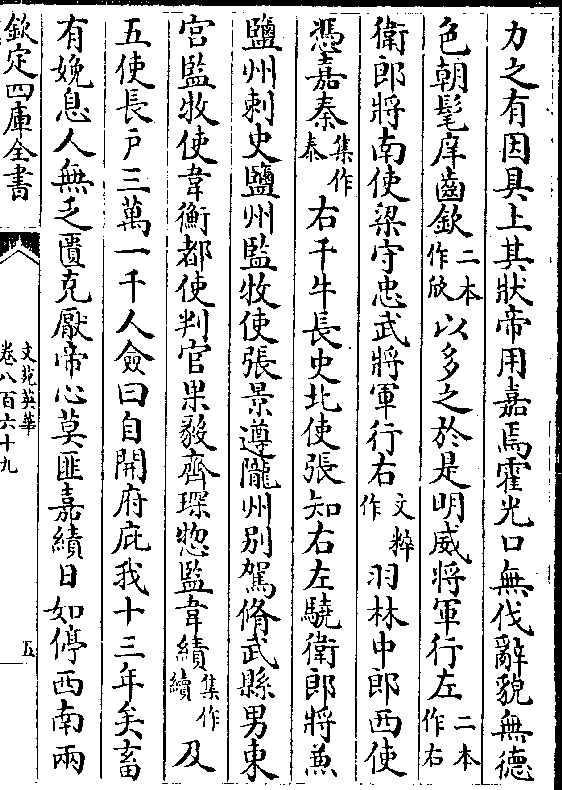 力之有因具上其狀帝用嘉焉霍光口無伐辭貌無德
色朝髦庠齒欽二本作欣以多之於是明威將軍行左二本作右
衛郎將南使梁守忠武將軍行右文粹作羽林中郎西使
憑嘉秦集作泰右千牛長史北使張知右左驍衛郎將兼
鹽州刺史鹽州監牧使張景遵隴州别駕脩武縣男東
宫監牧使韋衡都使判官果毅齊琛揔監韋績集作續及
五使長户三萬一千人僉曰自開府庇我十三年矣畜
有娩息人無乏匱克厭帝心莫匪嘉績日如停西南兩
欽定四庫全書
文苑英華
卷八百六十九
五